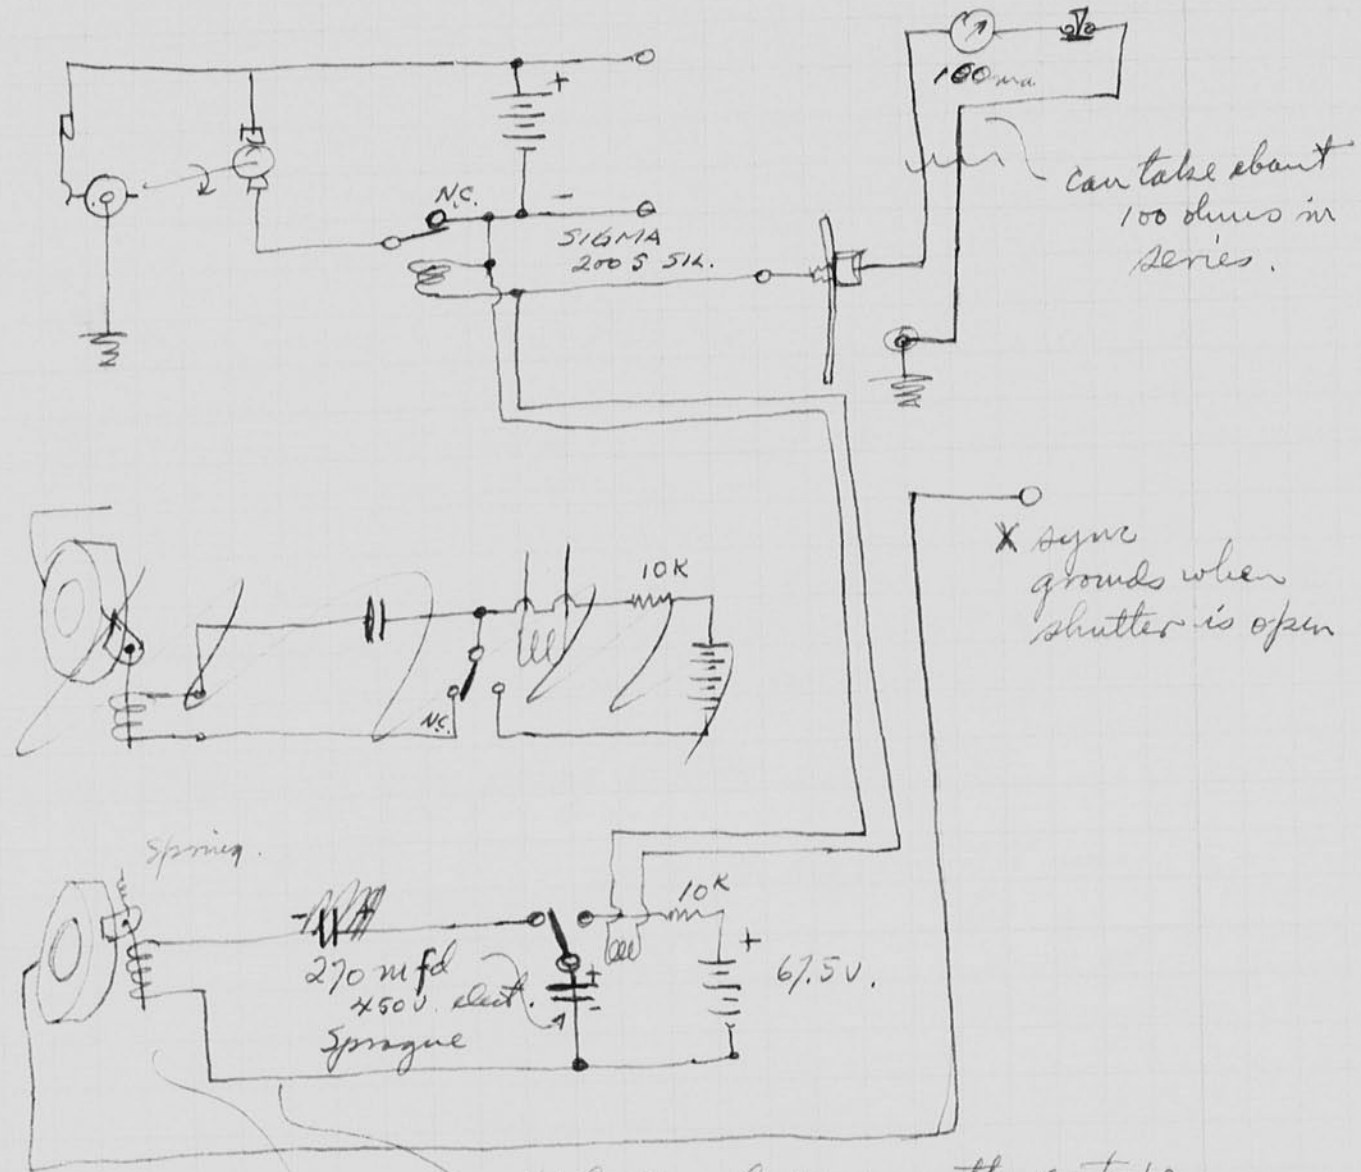 +
100 ma
can take about
100 ohms in
series.
N.C.
-
SIGMA
200 S SIL.
X sync
grounds when
shutter is open
10K
N.C.
Spring.
10K
-
+
270 mfd
450 V. elect.
Sprague
+
-
+
67.5V.